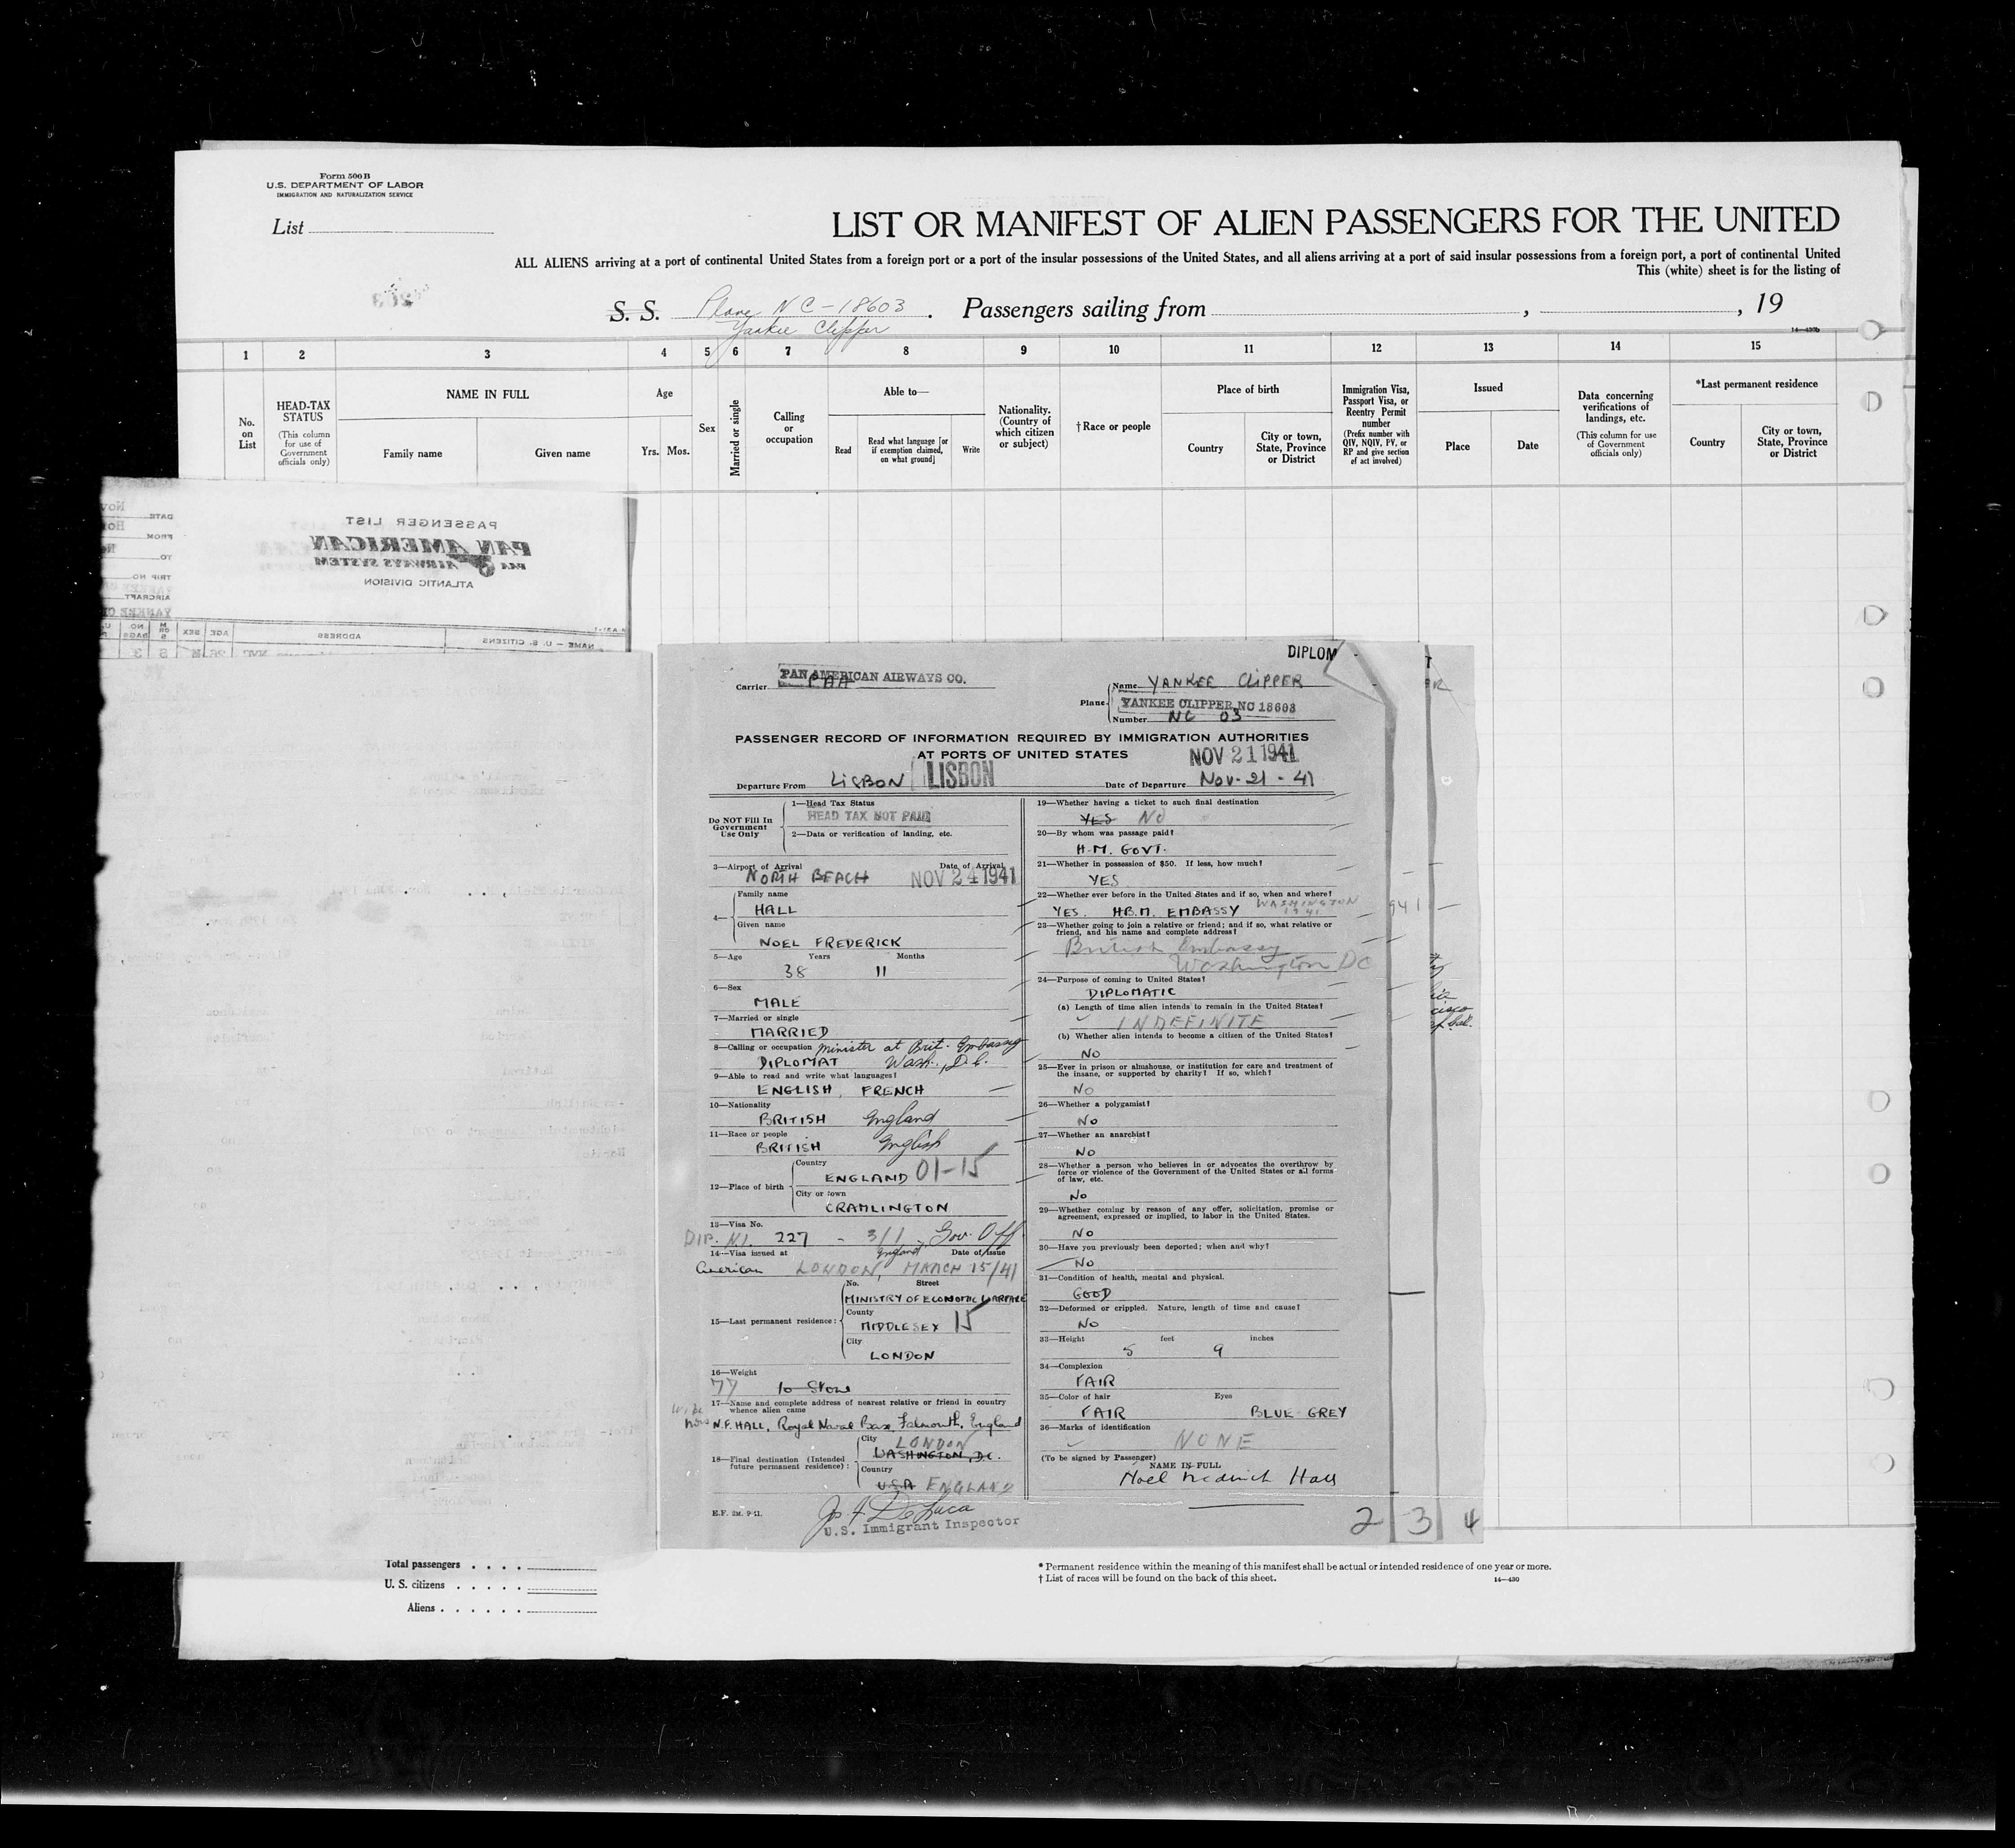 Form 500B
U.S. DEPARTMENT OF LABOR
IMMIGRATION AND NATURALIZATION SERVICE
List
LIST OR MANIFEST OF ALIEN PASSENGERS FOR THE UNITED
ALL ALIENS arriving at a port of continental United States from a foreign port or a port of the insular possessions of the United States, and all aliens arriving at a port of said insular possessions from a foreign port, a port of continental United
This (white) sheet is for the listing of
203
S. S. Plane NC-18603. Passengers sailing from , , 19
Yankee Clipper
14—430b
1 2 3 4 5 6 7 8 9 10 11 12 13 14 15
No. on List
HEAD-TAX STATUS
(This column for use of Government officials only)
NAME IN FULL
Family name
Given name
Age
Yrs. Mos.
Sex
Married or single
Calling or occupation
Able to—
Read
Read what language [or if exemption claimed, on what ground]
Write
Nationality. (Country of which citizen or subject)
†Race or people
Place of birth
Country
City or town, State, Province or District
Immigration Visa, Passport Visa, or Reentry Permit number
(Prefix number with QIV, NQIV, PV, or RP and give section of act involved)
Issued
Place
Date
Data concerning verifications of landings, etc.
(This column for use of Government officials only)
*Last permanent residence
Country
City or town, State, Province or District
PASSENGER LIST
PAN AMERICAN
PAA AIRWAYS SYSTEM
ATLANTIC DIVISION
DATE
FROM
TO
TRIP NO
AIRCRAFT
YANKEE
NAME - U. S. CITIZENS
ADDRESS
AGE
SEX
M OR S
NO BAGS
DIPLOM
Carrier PAN AMERICAN AIRWAYS CO.
PAA
Plane
Name YANKEE CLIPPER
YANKEE CLIPPER NC 18603
Number NC 03
PASSENGER RECORD OF INFORMATION REQUIRED BY IMMIGRATION AUTHORITIES
AT PORTS OF UNITED STATES
NOV 21 1941
Departure From LISBON LISBON
Date of Departure Nov-21-41
Do NOT Fill In
Government
Use Only
1—Head Tax Status
HEAD TAX NOT PAID
2—Data or verification of landing, etc.
3—Airport of Arrival Date of Arrival
NORTH BEACH NOV 24 1941
4—
Family name
HALL
Given name
NOEL FREDERICK
5—Age Years Months
38 11
6—Sex
MALE
7—Married or single
MARRIED
8—Calling or occupation Minister at Brit. Embassy
DIPLOMAT Wash., D.C.
9—Able to read and write what languages?
ENGLISH, FRENCH
10—Nationality
BRITISH England
11—Race or people
BRITISH English
12—Place of birth
Country
ENGLAND 01-15
City or town
CRAMLINGTON
13—Visa No.
DIP. N.I. 227 - 3/1 - Gov. Off
14—Visa issued at England Date of Issue
American LONDON, MARCH 15/41
15—Last permanent residence:
No. Street
MINISTRY OF ECONOMIC WARFARE
County
MIDDLESEX 15
City
LONDON
16—Weight
10 Stone
17—Name and complete address of nearest relative or friend in country
whence alien came
wife
Mrs N.F. HALL, Royal Naval Base, Falmouth, England
18—Final destination (Intended
future permanent residence):
City LONDON
WASHINGTON, D.C.
Country
U.S.A ENGLAND
E.F. 2M. 9-41.
Jos. F. DeLuca
U.S. Immigrant Inspector
19—Whether having a ticket to such final destination
YES NO
20—By whom was passage paid?
H.M. GOVT.
21—Whether in possession of $50. If less, how much?
YES
22—Whether ever before in the United States and if so, when and where?
YES. H.B.M. EMBASSY WASHINGTON
1941
23—Whether going to join a relative or friend; and if so, what relative or
friend, and his name and complete address?
British Embassy
Washington DC
24—Purpose of coming to United States?
DIPLOMATIC
(a) Length of time alien intends to remain in the United States?
INDEFINITE
(b) Whether alien intends to become a citizen of the United States?
NO
25—Ever in prison or almshouse, or institution for care and treatment of
the insane, or supported by charity? If so, which?
NO
26—Whether a polygamist?
NO
27—Whether an anarchist?
NO
28—Whether a person who believes in or advocates the overthrow by
force or violence of the Government of the United States or all forms
of law, etc.
NO
29—Whether coming by reason of any offer, solicitation, promise or
agreement, expressed or implied, to labor in the United States.
NO
30—Have you previously been deported; when and why?
NO
31—Condition of health, mental and physical.
GOOD
32—Deformed or crippled. Nature, length of time and cause?
NO
33—Height feet inches
5 9
34—Complexion
FAIR
35—Color of hair Eyes
FAIR BLUE-GREY
36—Marks of identification
NONE
(To be signed by Passenger)
NAME IN FULL
Noel Frederick Hall
941
2 3 4
Total passengers
U. S. citizens
Aliens
* Permanent residence within the meaning of this manifest shall be actual or intended residence of one year or more.
† List of races will be found on the back of this sheet.
14—430